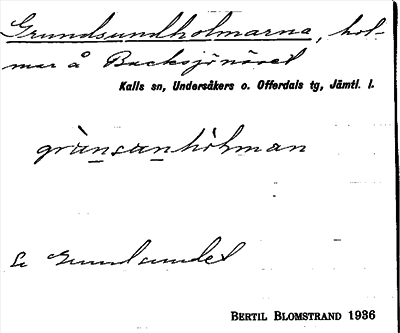 Grundsundholmarna, hol-
mar å Backsjönäset
Kalls sn, Undersåkers o. Offerdals tg, Jämtl. l.
grànsanhòhman
Se Grundsundet
BERTIL BLOMSTRAND 1936